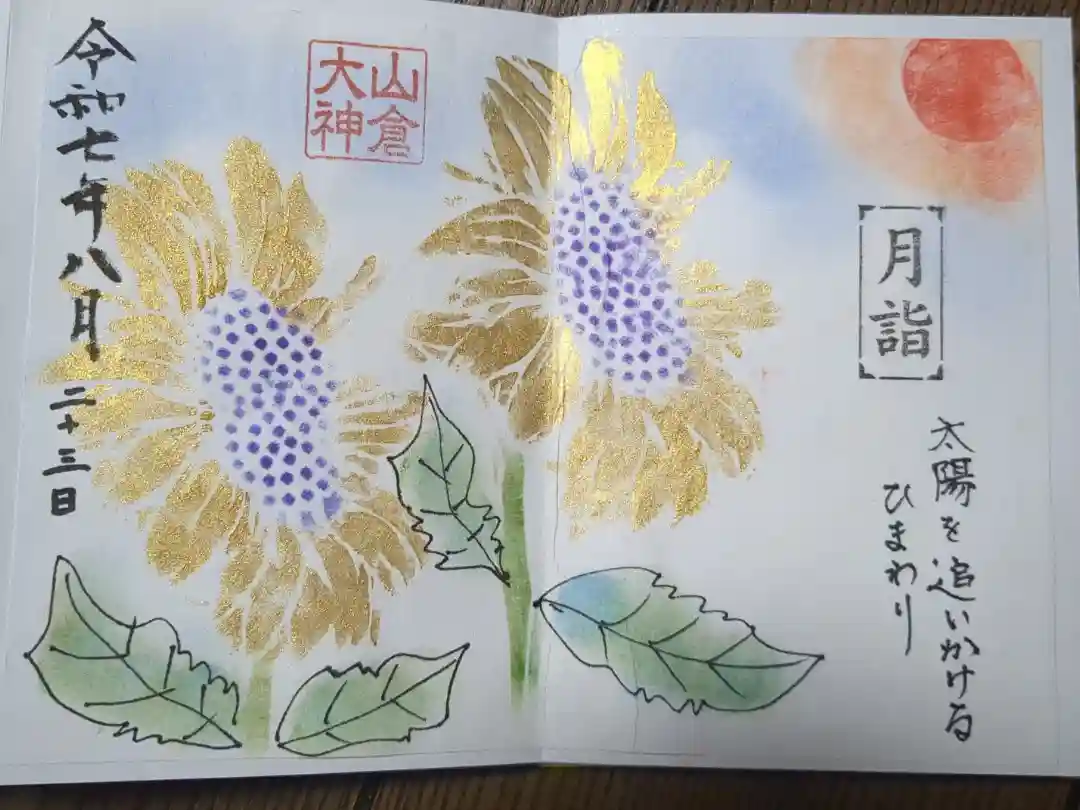 月詣
太陽を追いかける
ひまわり
山倉
大神
令和七年八月二十三日